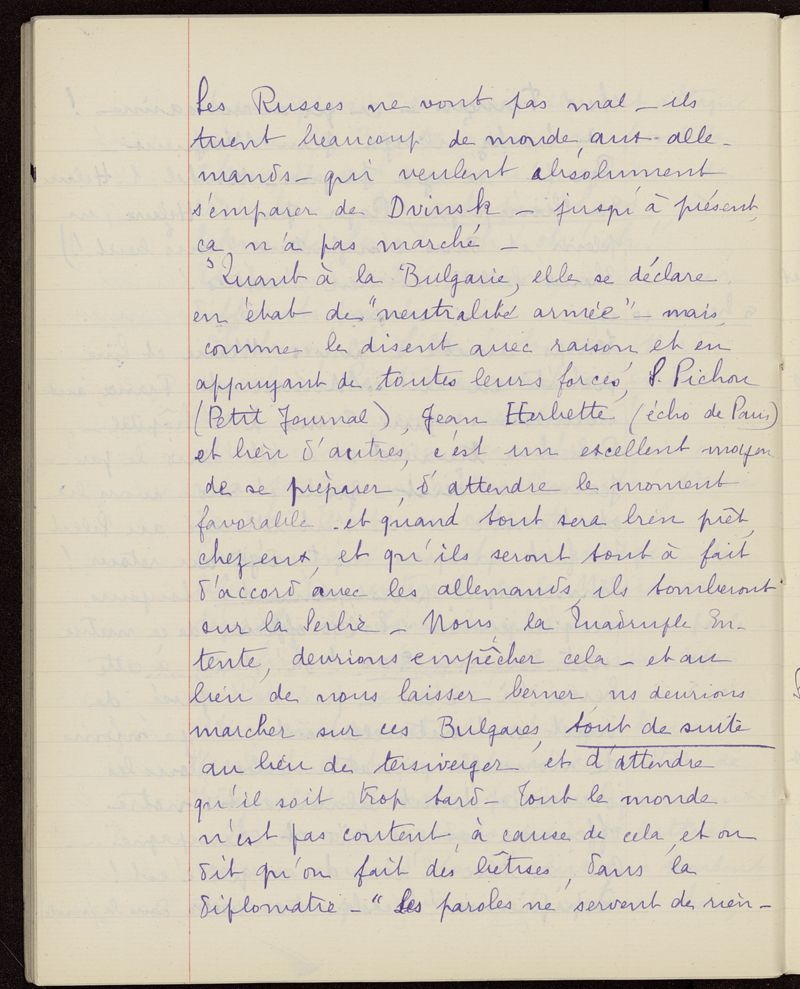 Les Russes ne vont pas mal _ ils
tuent beaucoup de monde, aux alle-
mands _ qui veulent absolument
s'emparer de Dvinsk _ jusqu'à présent,
ça n'a pas marché _
Quant à la Bulgarie, elle se déclare
en état de "neutralité armée" _ mais,
comme le disent avec raison et en
appuyant de toutes leurs forces, S. Pichon
(Petit Journal), Jean Herbette (écho de Paris)
et bien d'autres, c'est un excellent moyen
de se préparer, d'attendre le moment
favorable _ et quand tout sera bien prêt,
chez eux, et qu'ils seront tout à fait
d'accord avec les allemands, ils tomberont
sur la Serbie _ Nous, la Quadruple En-
tente, devrions empêcher cela _ et au
lieu de nous laisser berner ns devrions
marcher sur ces Bulgares, tout de suite
au lieu de tersiverger et d'attendre
qu'il soit trop tard _ Tout le monde
n'est pas content, à cause de cela, et on
dit qu'on fait des bêtises, dans la
diplomatie _ "Les paroles ne servent de rien _